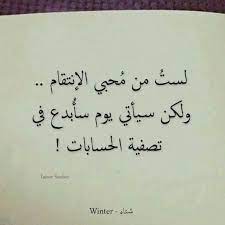 لستُ من مُحبي الإنتقام ..
ولكن سيأتي يوم سأُبدع في
تصفية الحسابات !
Winter - شتاء